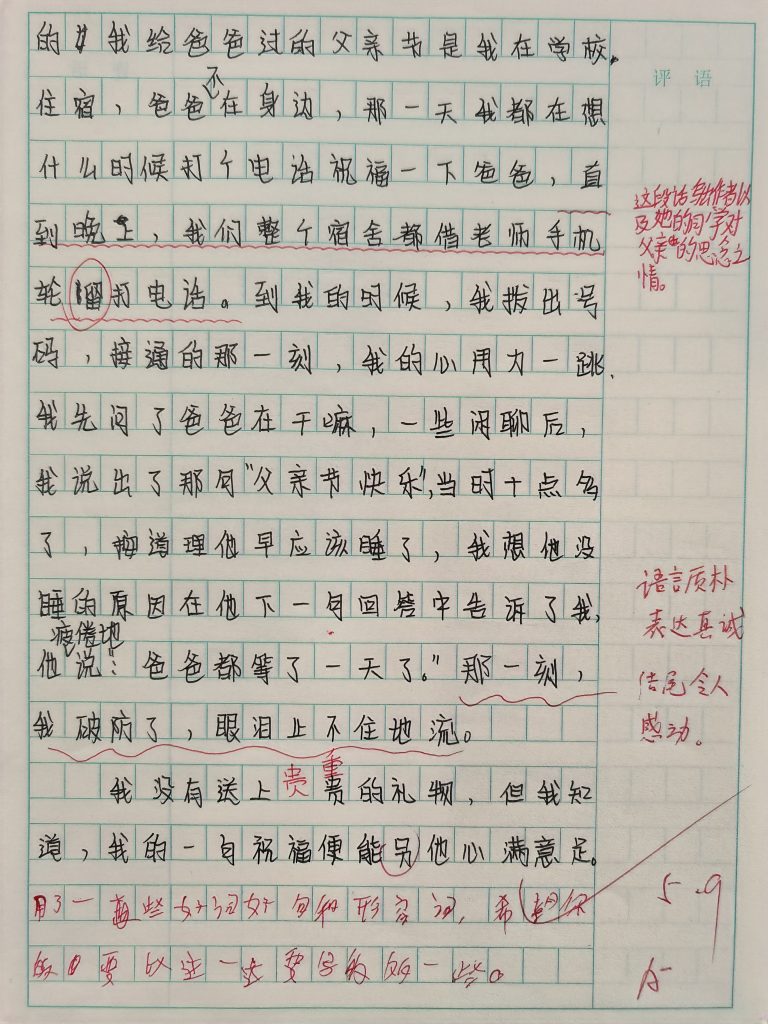 的我给爸爸过的父亲节是我在学校
住宿，爸爸不在身边，那一天我都在想
什么时候打个电话祝福一下爸爸，直
到晚上，我们整个宿舍都借老师手机
轮留打电话。到我的时候，我拨出号
码，接通的那一刻，我的心用力一跳，
我先问了爸爸在干嘛，一些闲聊后，
我说出了那句"父亲节快乐"，当时十点多
了，按道理他早应该睡了，我想他没
睡的原因在他下一句回答中告诉了我，
他疲倦地说："爸爸都等了一天了。"那一刻，
我破防了，眼泪止不住地流。
我没有送上贵重贵的礼物，但我知
道，我的一句祝福便能另他心满意足。
用了一些好词好句和形容词，希望你
的要以一些要字一些。
评语
这段话写作者以
及她的同学对
父亲的思念之
情。
语言质朴
表达真诚
结尾令人
感动。
5.9